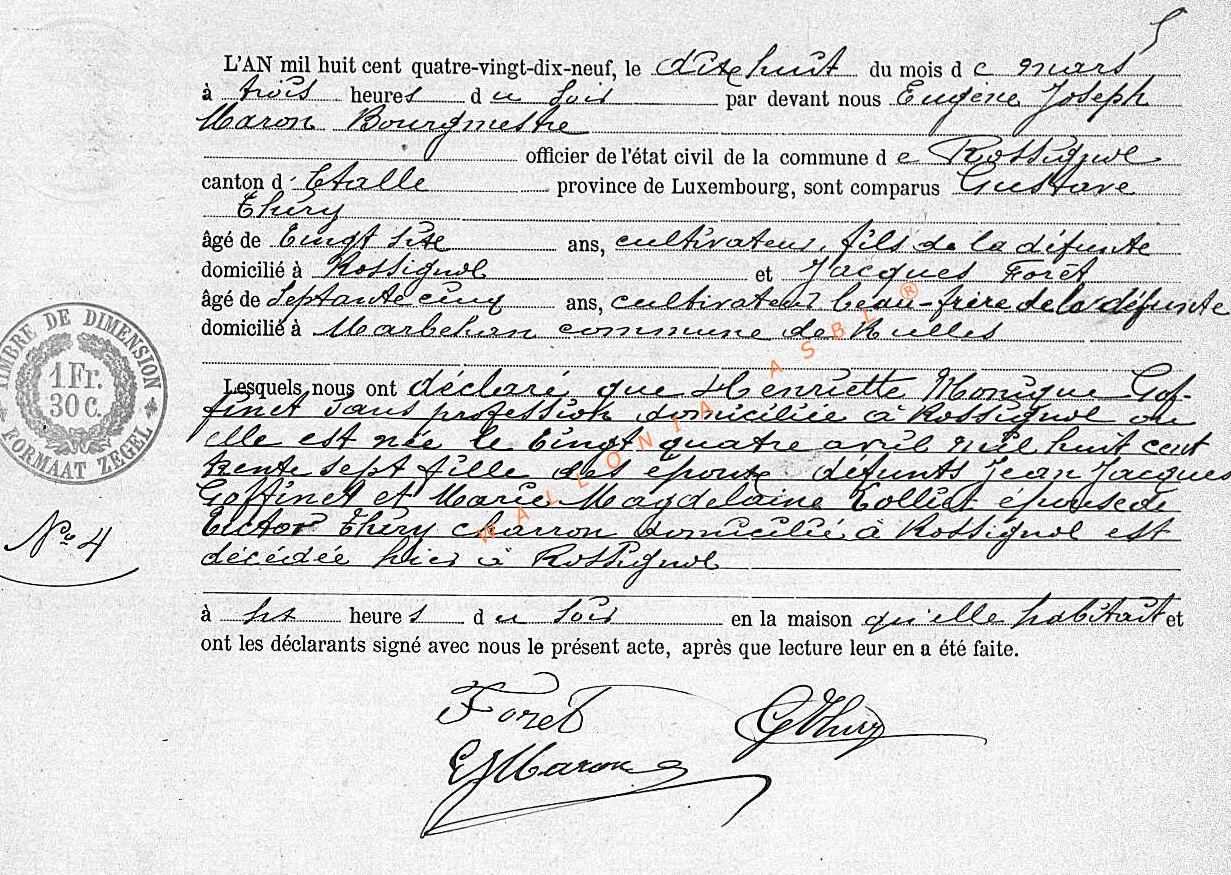 5
L'AN mil huit cent quatre-vingt-dix-neuf, le dixhuit du mois de mars
à trois heures du soir par devant nous Eugène Joseph
Maron Bourgmestre
officier de l'état civil de la commune de Rossignol
canton d'Etalle province de Luxembourg, sont comparus Gustave
Thiry
âgé de vingt six ans, cultivateur, fils de la défunte
domicilié à Rossignol et Jacques Foret
âgé de septante cinq ans, cultivateur beau-frère de la défunte
domicilié à Marbehan commune de Rulles
Lesquels nous ont déclaré que Henriette Monique Gof-
finet sans profession domiciliée à Rossignol où
elle est née le vingt quatre avril mil huit cent
trente sept fille des époux défunts Jean Jacques
Goffinet et Marie Magdelaine Colliet épouse de
Victor Thiry charron domicilié à Rossignol est
décédée hier à Rossignol
à six heures du soir en la maison qu'elle habitait et
ont les déclarants signé avec nous le présent acte, après que lecture leur en a été faite.
Foret
G Thiry
EJ Maron
TIMBRE DE DIMENSION
1 Fr.
30 C.
FORMAAT ZEGEL
No 4
WALLONIA ASBL ®